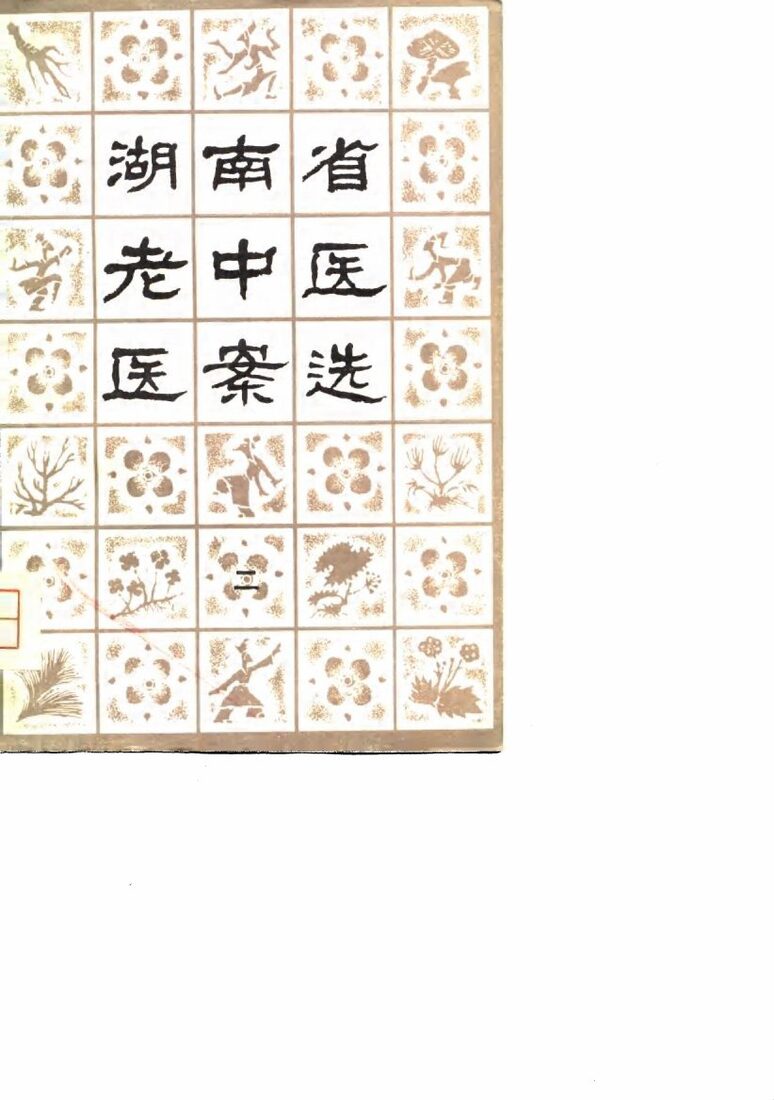 湖南省
老中医
医案选
二